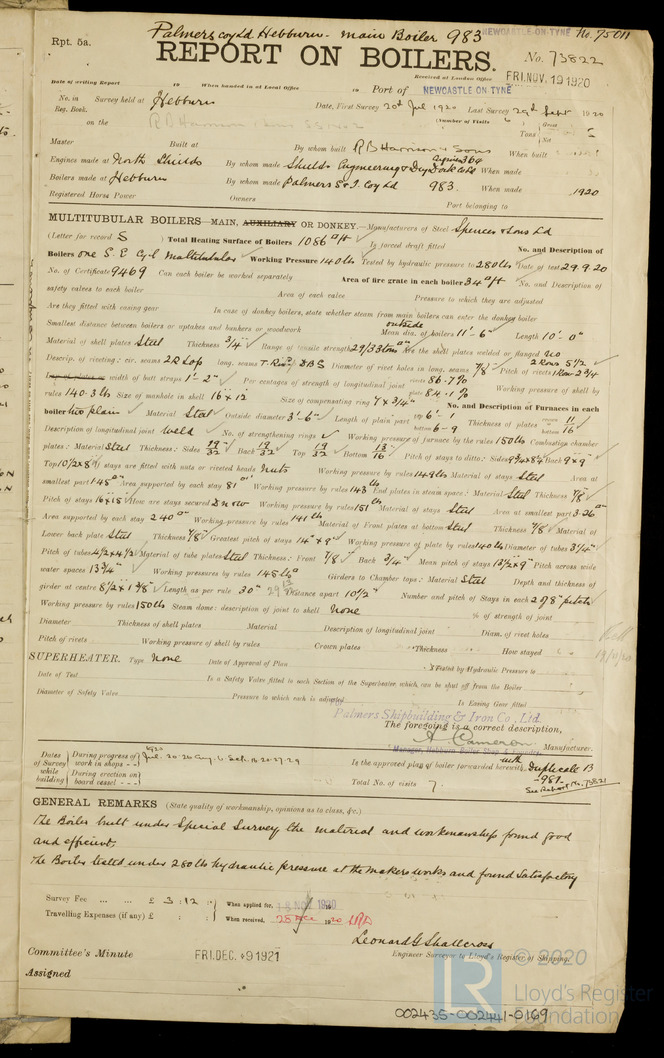 Palmers Coy Ld Hebburn - Main Boiler 983 NEWCASTLE-ON-TYNE No. 75011
Rpt. 5a.
REPORT ON BOILERS. No. 73822
Received at London Office FRI. NOV. 19 1920
Date of writing Report 19 When handed in at Local Office 19 Port of NEWCASTLE ON TYNE
No. in Reg. Book. Survey held at Hebburn Date, First Survey 20th Jul 1920 Last Survey 29th Sept 1920
on the (Number of Visits Gross Tons Net
Master Built at By whom built R B Harrison & Sons When built
Engines made at North Shields By whom made Shields Engineering & Dry Dock Co Ld Engine 369 When made
Boilers made at Hebburn By whom made Palmers S & I Coy Ld 983 When made 1920
Registered Horse Power Owners Port belonging to
MULTITUBULAR BOILERS—MAIN, AUXILIARY OR DONKEY.—Manufacturers of Steel Spencer & Sons Ld
(Letter for record S) Total Heating Surface of Boilers 1086 sq ft Is forced draft fitted No. and Description of
Boilers One S. E. Cyl Multitubular Working Pressure 140 lbs Tested by hydraulic pressure to 280 lbs Date of test 29.9.20
No. of Certificate 9469 Can each boiler be worked separately Area of fire grate in each boiler 34 sq ft No. and Description of
safety valves to each boiler Area of each valve Pressure to which they are adjusted
Are they fitted with easing gear In case of donkey boilers, state whether steam from main boilers can enter the donkey boiler
Smallest distance between boilers or uptakes and bunkers or woodwork outside Mean dia. of boilers 11'-6" Length 10'-0"
Material of shell plates Steel Thickness 3/4" Range of tensile strength 29/33 tons Are the shell plates welded or flanged no
Descrip. of riveting: cir. seams 2 R Lap long. seams T. Riv D B S Diameter of rivet holes in long. seams 7/8" Pitch of rivets 2 Rows 5 1/2 1 Row 2 3/4
Lap of plates or width of butt straps 1'-2" Per centages of strength of longitudinal joint rivets 86.7% plate 84.1% Working pressure of shell by
rules 140.3 lbs Size of manhole in shell 16 x 12 Size of compensating ring 7 x 3/4" No. and Description of Furnaces in each
boiler two plain Material Steel Outside diameter 3'-6" Length of plain part top 6'-1 bottom 6-9 Thickness of plates crown bottom 11/16
Description of longitudinal joint Weld No. of strengthening rings Working pressure of furnace by the rules 150 lbs Combustion chamber
plates: Material Steel Thickness: Sides 19/32 Back 19/32 Top 19/32 Bottom 13/16 Pitch of stays to ditto: Sides 9 3/4 x 8 1/4 Back 9 x 9"
Top 10 1/2 x 8 If stays are fitted with nuts or riveted heads Nuts Working pressure by rules 149 lbs Material of stays Steel Area at
smallest part 1.45 sq" Area supported by each stay 81 sq" Working pressure by rules 143 lbs End plates in steam space: Material Steel Thickness 7/8
Pitch of stays 16 x 15 How are stays secured D nuts Working pressure by rules 151 lbs Material of stays Steel Area at smallest part 3.26 sq"
Area supported by each stay 240 sq" Working pressure by rules 141 lbs Material of Front plates at bottom Steel Thickness 7/8 Material of
Lower back plate Steel Thickness 7/8 Greatest pitch of stays 14" x 9" Working pressure of plate by rules 140 lbs Diameter of tubes 3 1/4"
Pitch of tubes 4 1/2 x 4 1/2 Material of tube plates Steel Thickness: Front 7/8 Back 3/4" Mean pitch of stays 13 1/2 x 9 Pitch across wide
water spaces 13 3/4" Working pressures by rules 145 lbs Girders to Chamber tops: Material Steel Depth and thickness of
girder at centre 8 1/2 x 1 3/8 Length as per rule 30" Distance apart 10 1/2" Number and pitch of Stays in each 2 of 8" pitch
Working pressure by rules 150 lbs Steam dome: description of joint to shell None % of strength of joint
Diameter Thickness of shell plates Material Description of longitudinal joint Diam. of rivet holes
Pitch of rivets Working pressure of shell by rules Crown plates Thickness How stayed
SUPERHEATER. Type None Date of Approval of Plan Tested by Hydraulic Pressure to
Date of Test Is a Safety Valve fitted to each Section of the Superheater which can be shut off from the Boiler
Diameter of Safety Valve Pressure to which each is adjusted Is Easing Gear fitted
Palmers Shipbuilding & Iron Co., Ltd.
The foregoing is a correct description,
A. Cameron Manufacturer.
Dates of Survey while building During progress of work in shops - - 1920 Jul. 20. 26 Aug. 6 Sept. 16. 20. 27. 29 Is the approved plan of boiler forwarded herewith with Duplicate B -981-
During erection on board vessel - - - Total No. of visits 7. See Report No. 73821
GENERAL REMARKS (State quality of workmanship, opinions as to class, &c.)
The Boiler built under Special Survey the material and workmanship found good
and efficient.
The Boiler tested under 280 lbs hydraulic pressure at the makers works and found satisfactory
Survey Fee ... ... £ 3 : 12 : When applied for, 18 NOV 1920
Travelling Expenses (if any) £ : : When received, 28 1920
Leonard G Shallcross
Engineer Surveyor to Lloyd's Register of Shipping.
Committee's Minute FRI. DEC. 9 1921
Assigned
LR © 2020
Lloyd's Register
Foundation
002435-002441-0169